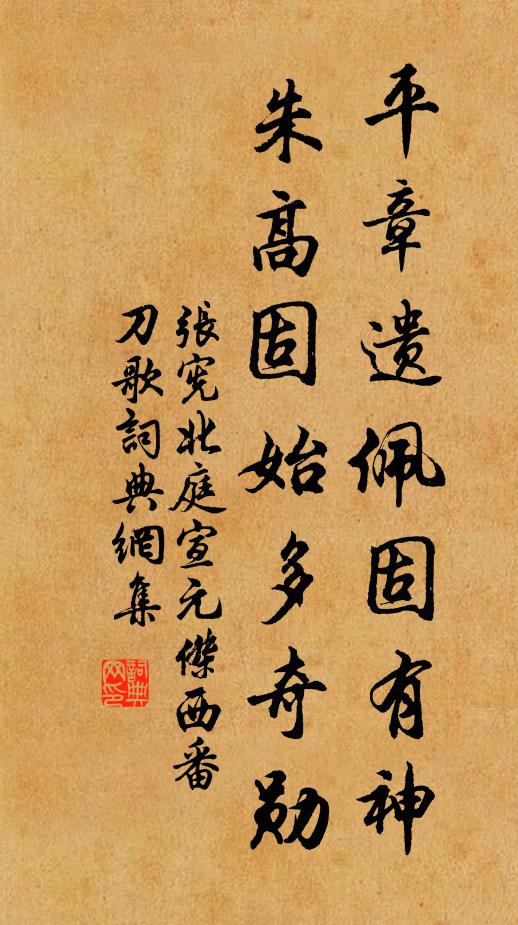 平章遗佩固有神
朱高固始多奇勋
張宪北庭宣元傑西番
刀歌詞典網集
詞典
网印